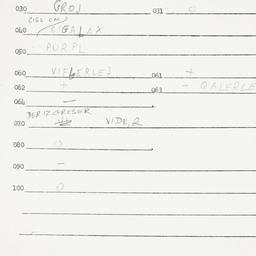 030 GROS 031 0
CIGLON
040 CIGALAX
050 PURPL
060 VIFLERLES 061 +
062 + 063 - QALERLE
064 -
DERIZGRESER
070 VIDER
080 0
090 -
100 0